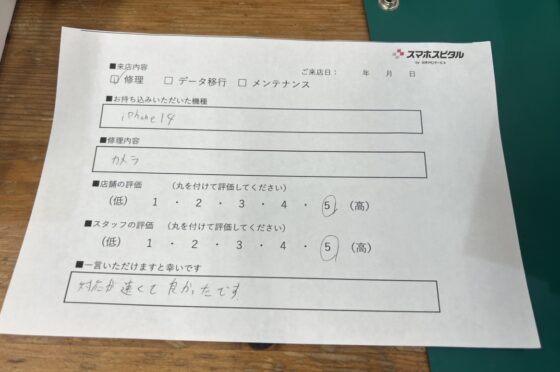 スマホスピタル
■来店内容
ご来店日： 年 月 日
☑ 修理 □ データ移行 □ メンテナンス
■お持ち込みいただいた機種
iPhone14
■修理内容
カメラ
■店舗の評価 （丸を付けて評価してください）
（低） 1 ・ 2 ・ 3 ・ 4 ・ 5 （高）
■スタッフの評価 （丸を付けて評価してください）
（低） 1 ・ 2 ・ 3 ・ 4 ・ 5 （高）
■一言いただけますと幸いです
対応が速くて良かったです